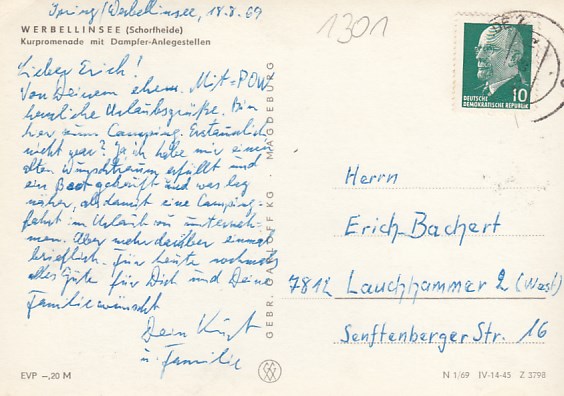 Joring/Werbellinsee, 18.8.69
WERBELLINSEE (Schorfheide)
Kurpromenade mit Dampfer-Anlegestellen
Lieber Erich!
Von Deinem ehem. Mit-POW
herzliche Urlaubsgrüße. Bin
hier zum Camping. Erstaunlich
nicht war? Ja ich habe mir einen
alten Wunschtraum erfüllt und
ein Boot gekauft und was lag
näher, als damit eine Camping-
fahrt im Urlaub zu unterneh-
men. Aber mehr darüber einmal
brieflich. Für heute nochmals
alles Gute für Dich und Deine
Familie wünscht
Dein Kurt
u. Familie
EVP –,20 M
GEBR. KG · MAGDEBURG
1301
10
DEUTSCHE
DEMOKRATISCHE REPUBLIK
Herrn
Erich Bachert
7812 Lauchhammer 2 (West)
Senftenberger Str. 16
N 1/69 IV-14-45 Z 3798